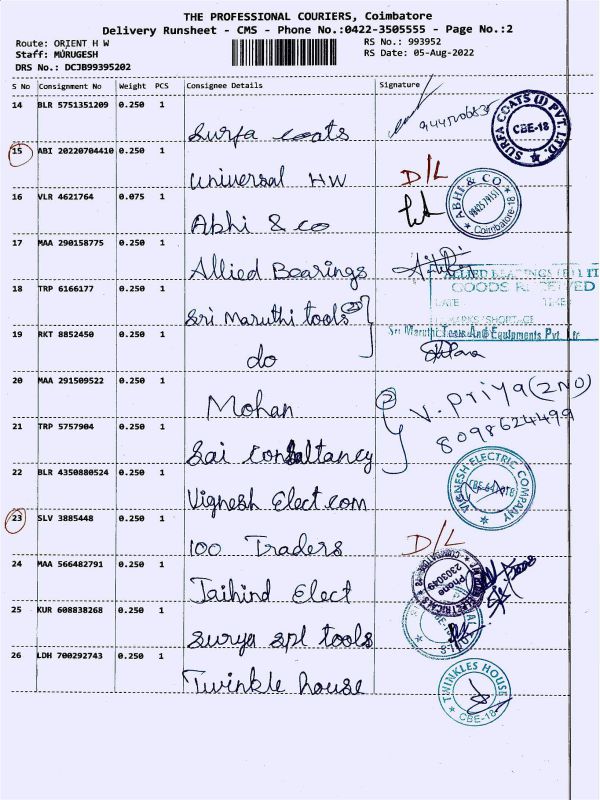 THE PROFESSIONAL COURIERS, Coimbatore
Delivery Runsheet - CMS - Phone No.:0422-3505555 - Page No.:2
Route: ORIENT H W RS No.: 993952
Staff: MURUGESH RS Date: 05-Aug-2022
DRS No.: DCJB99395202
S No Consignment No Weight PCS Consignee Details Signature
14 BLR 5751351209 0.250 1
Surfa coats
SURFA COATS (I) PVT. LTD. CBE-18
15 ABI 20220704410 0.250 1
Universal HW D/L
16 VLR 4621764 0.075 1
Abhi & co
ABHI & CO Coimbatore-18
17 MAA 290158775 0.250 1
Allied Bearings
ALLIED BEARINGS
GOODS RECEIVED
DATE TIME
18 TRP 6166177 0.250 1
Sri Maruthi tools (2)
Sri Maruthi Tools And Equipments Pvt Ltd
19 RKT 8852450 0.250 1
do
20 MAA 291509522 0.250 1
Mohan (2) V. Priya (2NO)
8098624499
21 TRP 5757904 0.250 1
Sai Consultancy
22 BLR 4350880524 0.250 1
Vignesh Elect com
VIGNESH ELECTRIC COMPANY
23 SLV 3885448 0.250 1
100 Traders D/L
24 MAA 566482791 0.250 1
Jaihind Elect
Phone 2303049
25 KUR 608838268 0.250 1
Surya spl tools
26 LDH 700292743 0.250 1
Twinkle house
TWINKLES HOUSE CBE-18